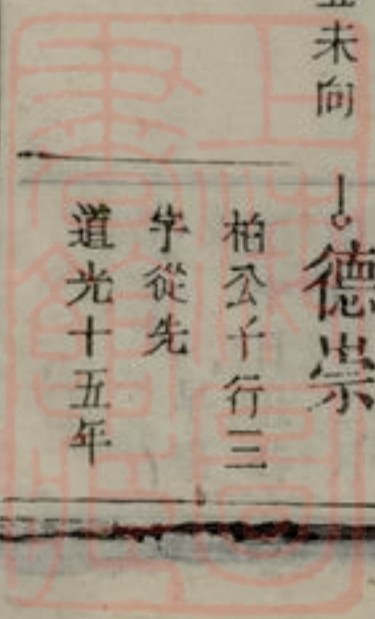 未向
德崇
柏公子行三
字從先
道光十五年